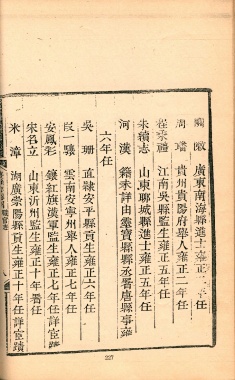 廣東南海縣進士雍正二年任
周 璠 貴州貴陽府舉人雍正二年任
程崇禮 江南吳縣監生雍正五年任
朱續志 山東聊城縣進士雍正五年任
河 漢 籍未詳由靈寶縣縣丞署唐縣事雍
六年任
吳 珊 直隸安平縣貢生雍正六年任
段一騄 雲南安寧州舉人雍正七年任
安鳳彩 鑲紅旗漢軍監生雍正七年任詳宦蹟
宋名立 山東沂州監生雍正十年署任
米 漳 湖廣崇陽縣貢生雍正十年任詳宦蹟
227